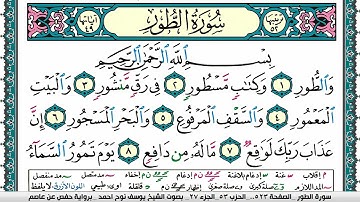 سُورَةُ الطُّورِ
ترتيبها ٥٢
آياتها ٤٩
بِسْمِ اللَّهِ الرَّحْمَٰنِ الرَّحِيمِ
وَالطُّورِ ١ وَكِتَابٍ مَّسْطُورٍ ٢ فِي رَقٍّ مَّنشُورٍ ٣ وَالْبَيْتِ
الْمَعْمُورِ ٤ وَالسَّقْفِ الْمَرْفُوعِ ٥ وَالْبَحْرِ الْمَسْجُورِ ٦ إِنَّ
عَذَابَ رَبِّكَ لَوَاقِعٌ ٧ مَّا لَهُ مِن دَافِعٍ ٨ يَوْمَ تَمُورُ السَّمَاءُ
سورة الطور الصفحة ٥٢٣ الحزب ٥٣ الجزء ٢٧ بصوت الشيخ يوسف نوح احمد برواية حفص عن عاصم